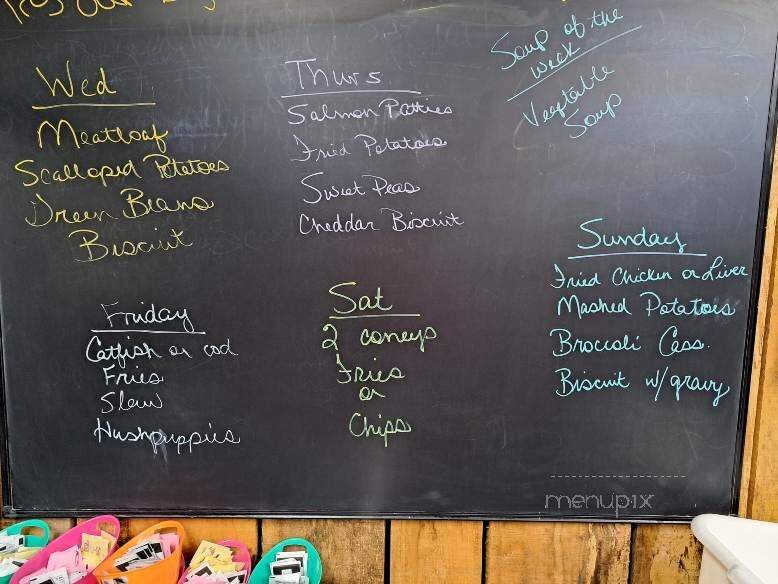 Wed
Meatloaf
Scalloped Potatoes
Green Beans
Biscuit
Thurs
Salmon Patties
Fried Potatoes
Sweet Peas
Cheddar Biscuit
Soup of the
Week
Vegetable
Soup
Friday
Catfish or cod
Fries
Slaw
Hushpuppies
Sat
2 coneys
Fries
or
Chips
Sunday
Fried Chicken or Liver
Mashed Potatoes
Broccoli Cass.
Biscuit w/gravy
menupix